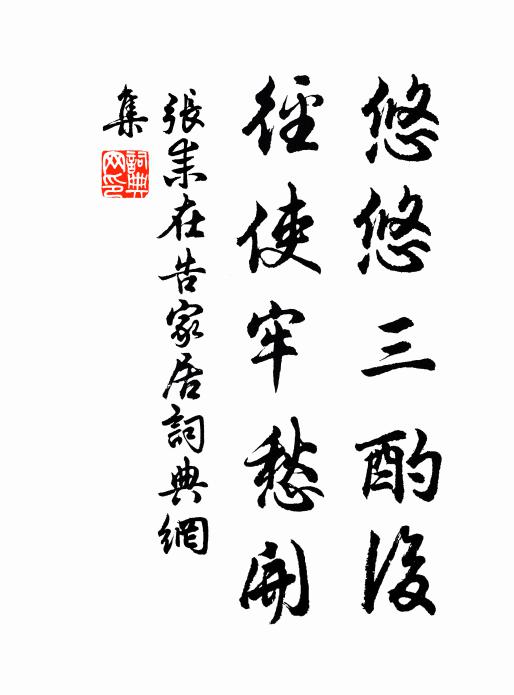 悠悠三酌後
徑使牢愁開
張耒在告家居詞典網
集
詞典
网印